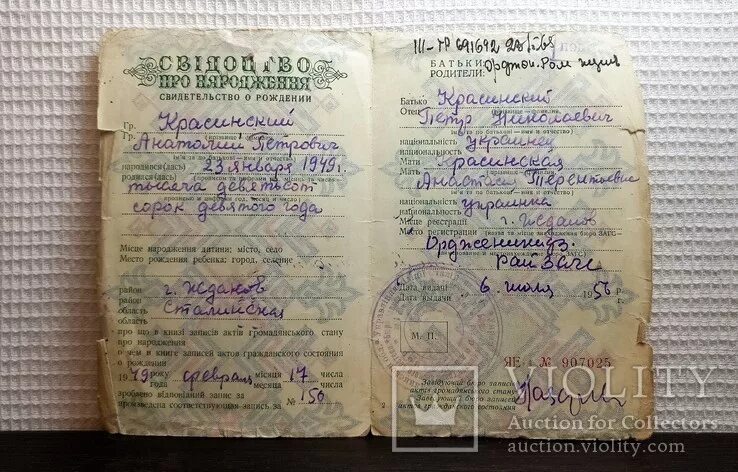 СВІДОЦТВО
ПРО НАРОДЖЕННЯ
СВИДЕТЕЛЬСТВО О РОЖДЕНИИ
Гр. Красинский
Гр.
Анатолий Петрович
ім'я та по батькові — имя и отчество
народився(лась) 23 января 1949 г.
родился(лась)
тысяча девятьсот
сорок девятого года
Місце народження дитини: місто, село
Место рождения ребенка: город, селение
район г. Жданов
район
область Сталинская
область
про що в книзі записів актів громадянського стану
про народження
о чем в книге записей актов гражданского состояния
о рождении
1949 року февраля місяця 17 числа
года месяца числа
зроблено відповідний запис за № 150
произведена соответствующая запись за
III-ЖР 691692
БАТЬКИ
РОДИТЕЛИ:
Батько Красинский
Отец
Петр Николаевич
національність украинец
национальность
Мати Красинская
Мать
Анастасия Терентьевна
національність украинка
национальность
Місце реєстрації г. Жданов
Место регистрации
Орджоникидз.
райЗАГС
Дата видачі 6 июля 1956 р.
Дата выдачи г.
М. П.
ЯЕ № 907025
Завідуючий бюро записів
актів громадянського стану
Заведующий бюро записей
актов гражданского состояния
VIOLITY
Auction for Collectors
auction.violity.com